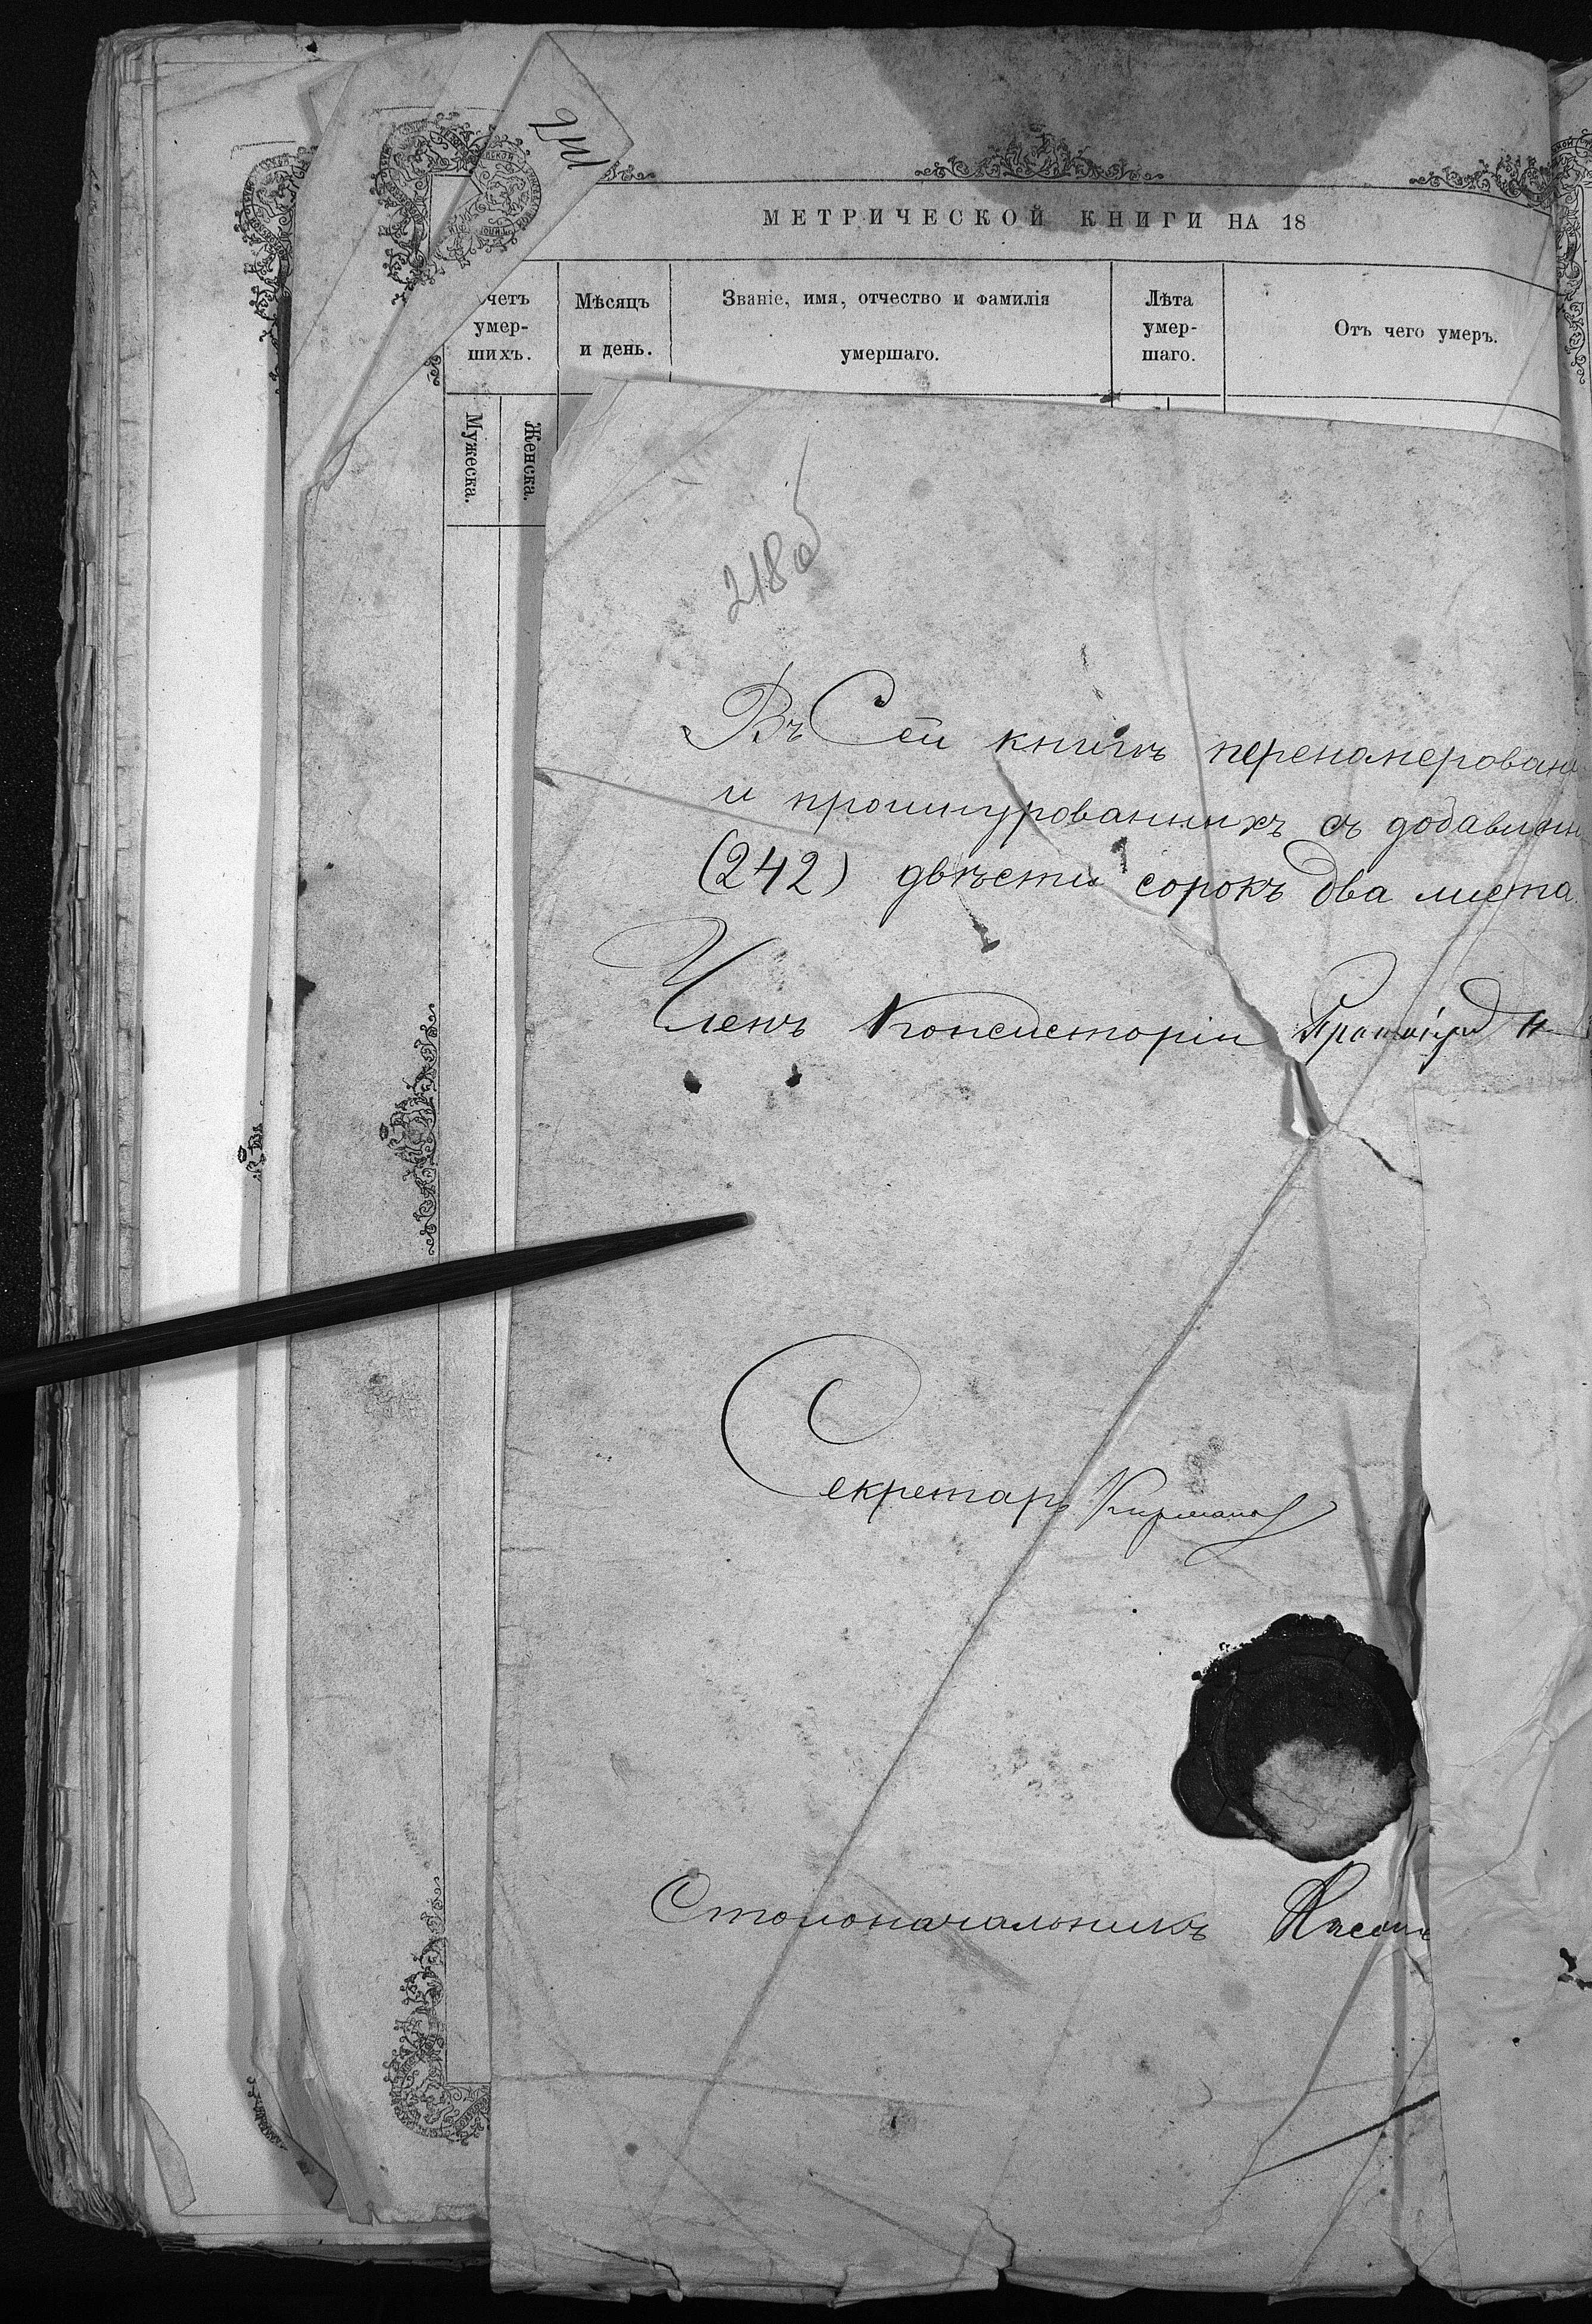 241
МЕТРИЧЕСКОЙ КНИГИ НА 18
четъ умер- шихъ.
Мужеска.
Женска.
Мѣсяцъ и день.
Званіе, имя, отчество и фамилія умершаго.
Лѣта умер- шаго.
Отъ чего умеръ.
218об
Въ Сей книгѣ перенамерован
и прошнурованныхъ съ добавленн
(242) двѣсти сорокъ два листа
Членъ Консисторіи
Секретарь
Столоначальникъ